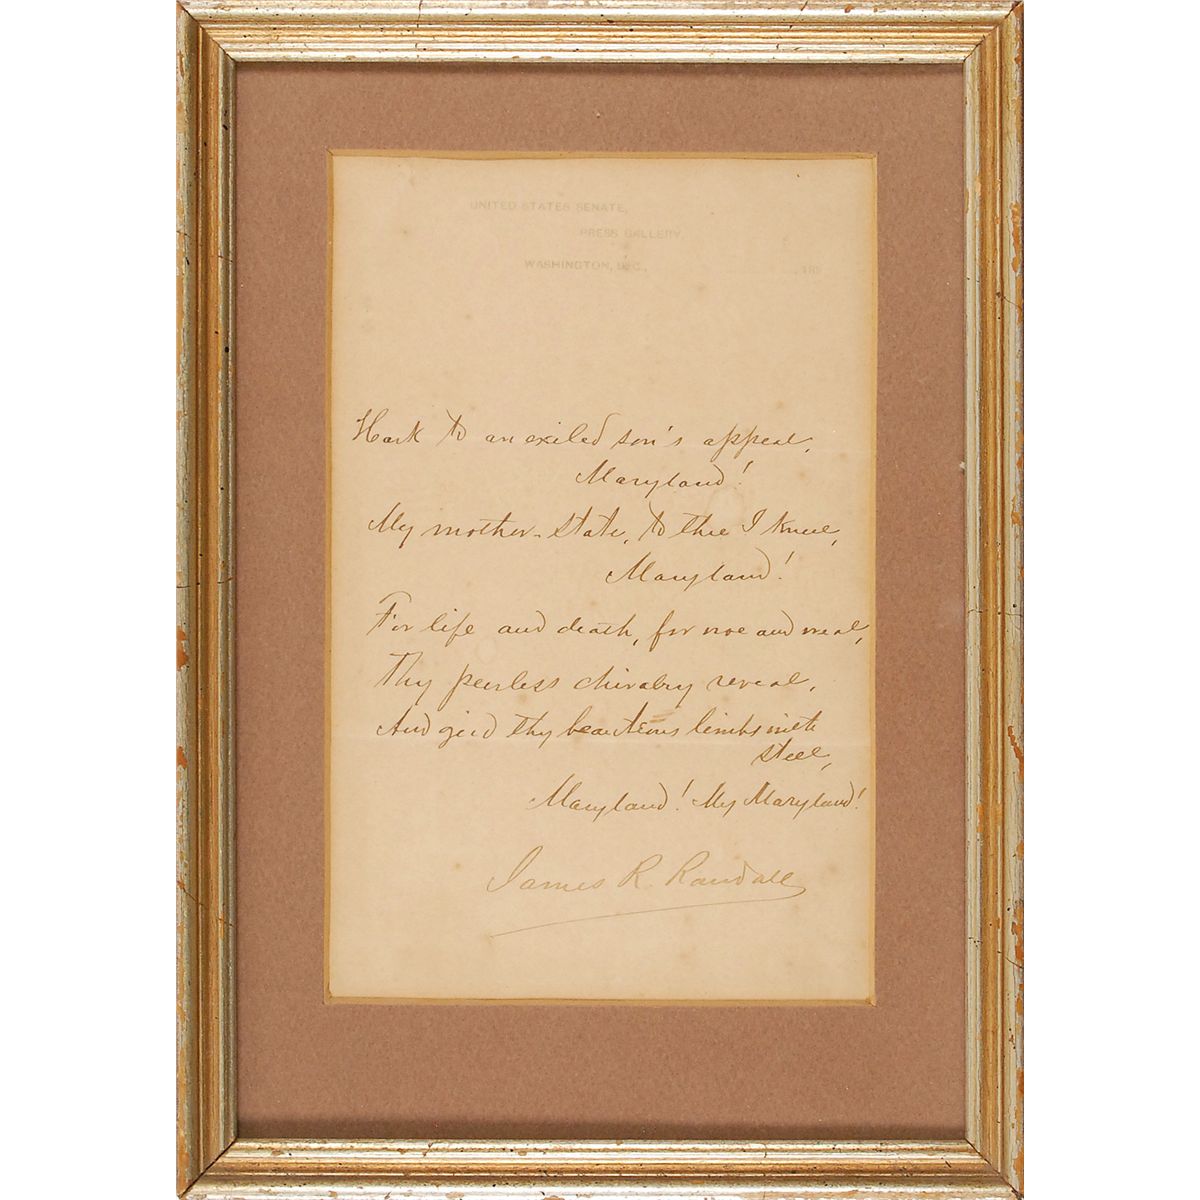 UNITED STATES SENATE,
PRESS GALLERY,
WASHINGTON, D.C., 189
Hark to an exiled son's appeal,
Maryland!
My mother-state, to thee I kneel,
Maryland!
For life and death, for woe and weal,
Thy peerless chivalry reveal,
And gird thy beauteous limbs with
steel,
Maryland! My Maryland!
James R. Randall